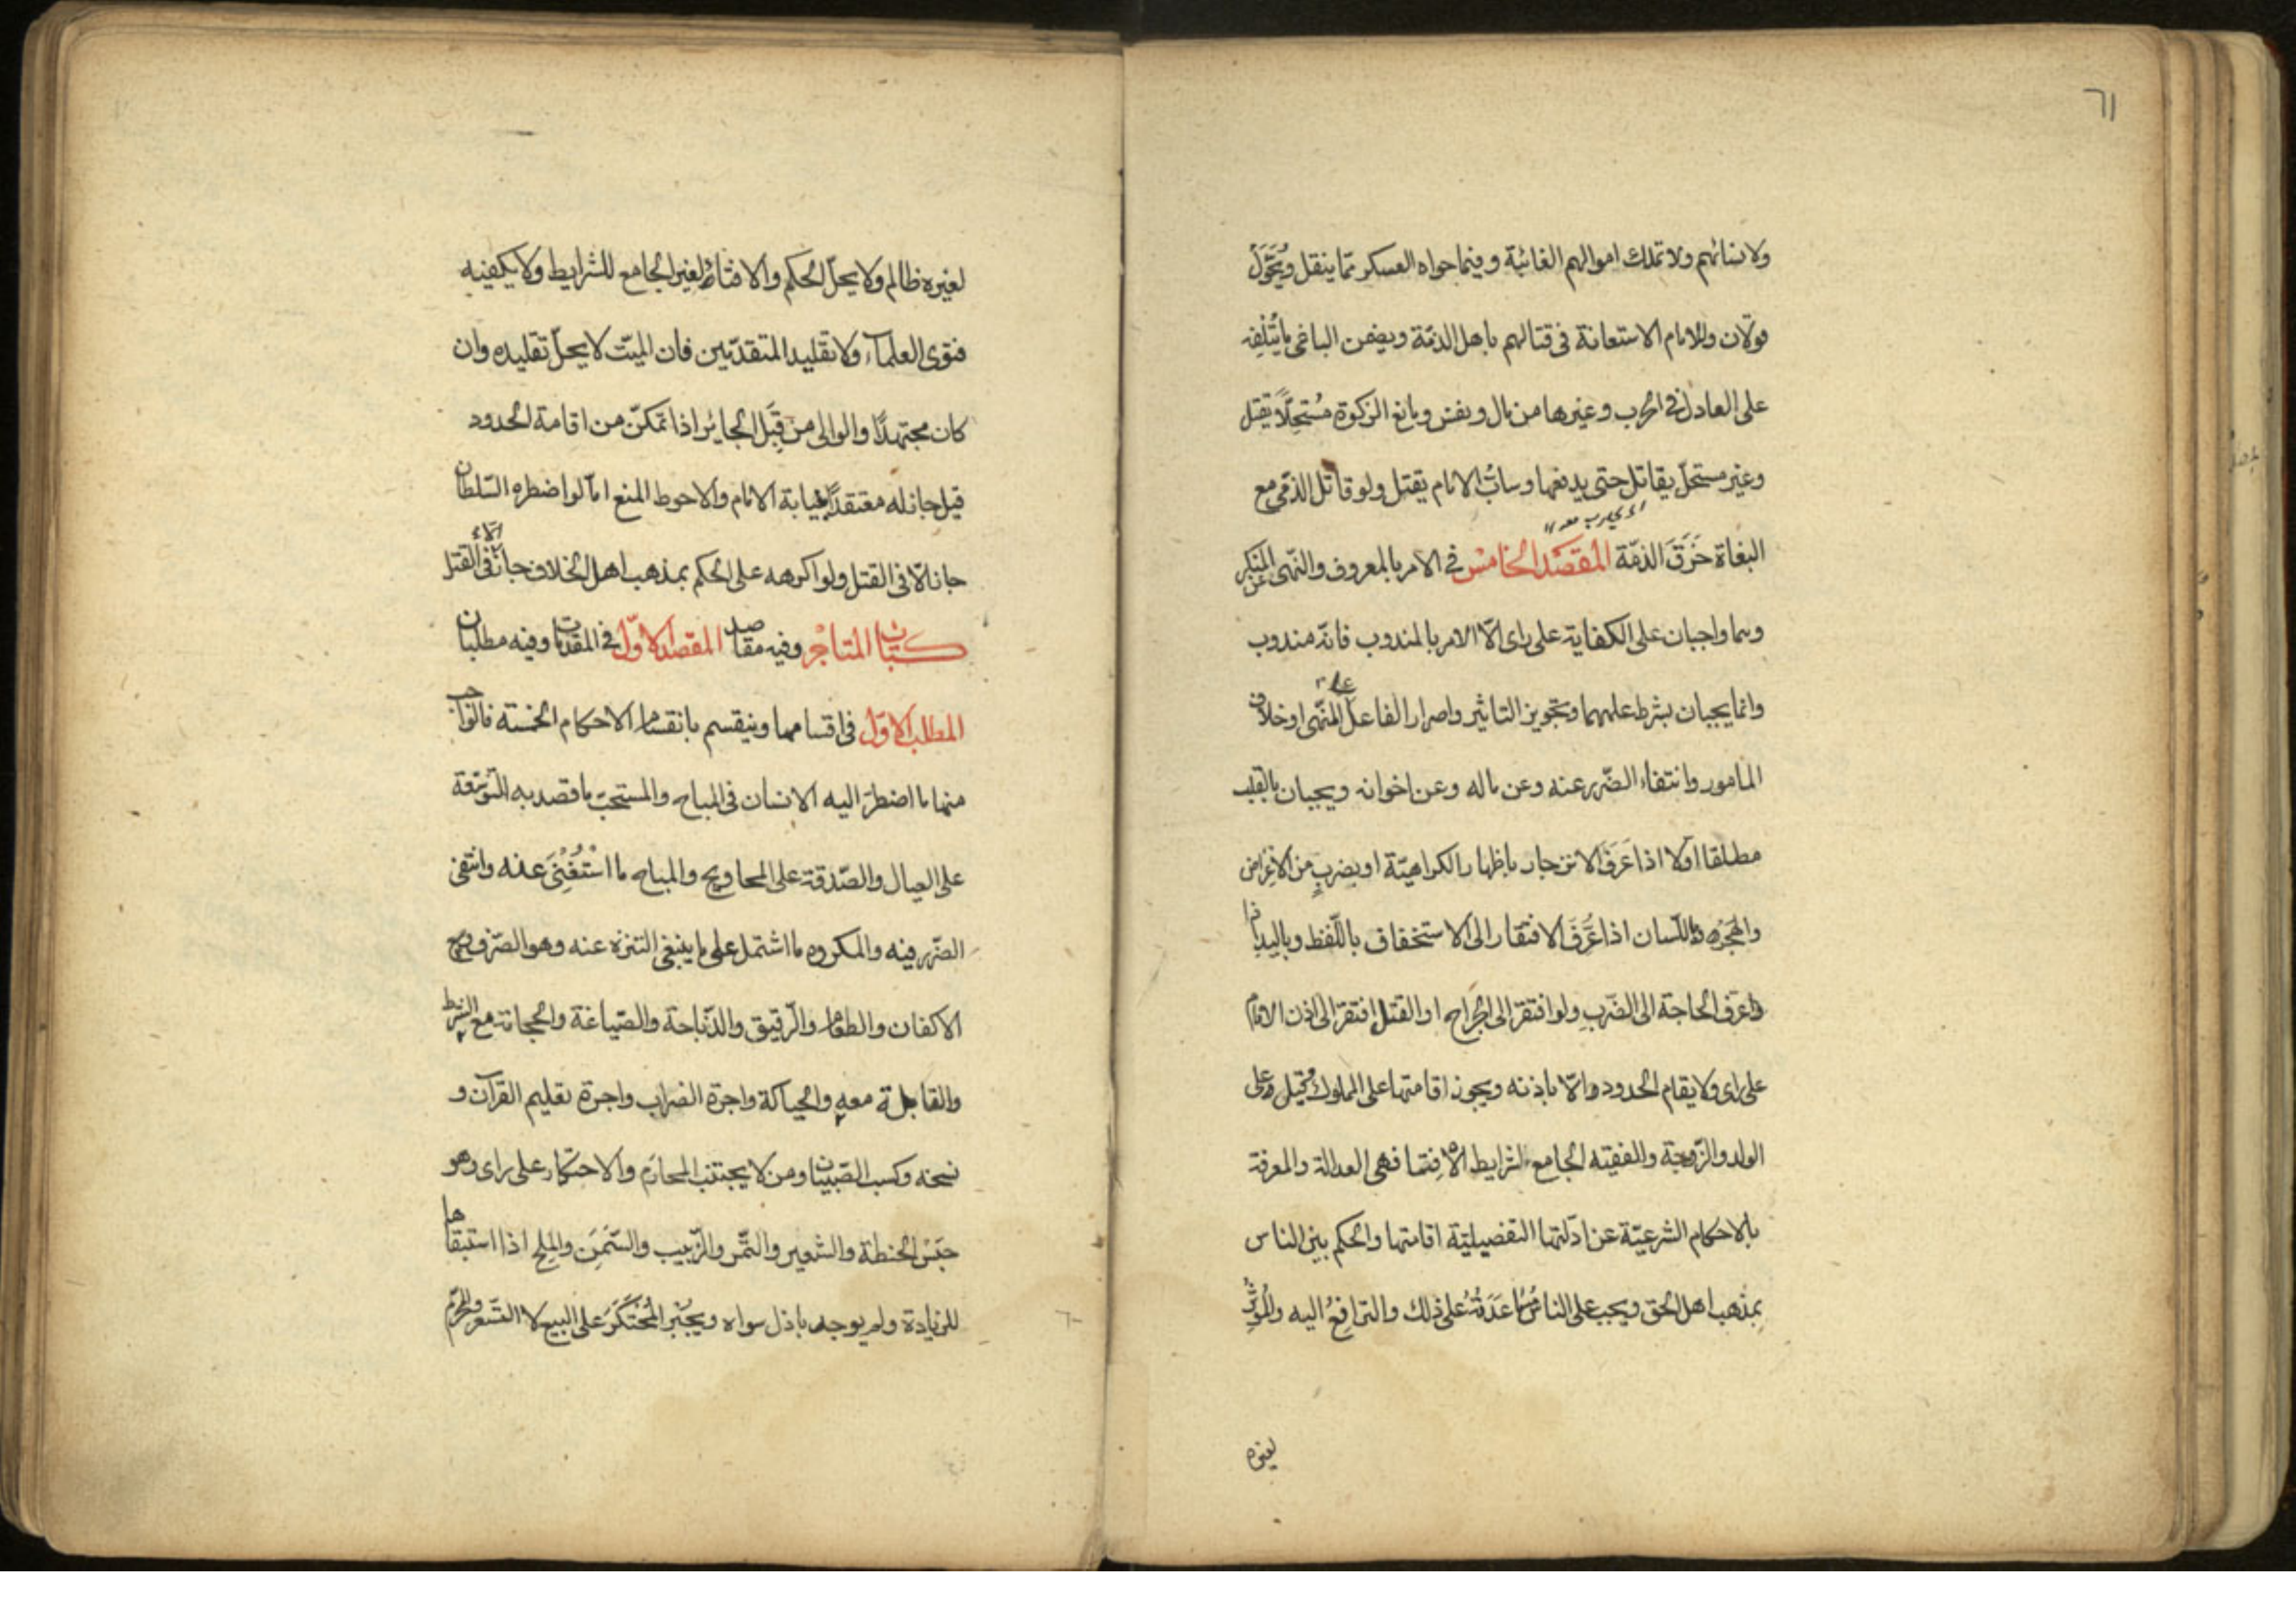 ٦١
ولا نسائهم ولا تملك اموالهم الغائبة وفيما حواه العسكر مما ينقل ويُحَوَّلُ
قولان وللامام الاستعانة فى قتالهم باهل الذمّة ويضمن الباغى ما يُتْلِفِه
على العادل فى الحرب وغيرها من مال ونفس ومانع الزكوة مُسْتَحِلًّا يقتل
وغير مستحلّ يقاتل حتى يدفعها وسابُّ الامام يقتل ولو قاتل الذمّى مع
البغاة خَرَقَ الذمّة المقصد الخامس فى الامر بالمعروف والنّهى عن المنكر
وهما واجبان على الكفاية على راى الّا الامر بالمندوب فانّه مندوب
وانما يجبان بشرط علمهما وتجويز التاثير واصرار الفاعل على المنهى او خلاف
المامور وانتفاء الضّرر عنه وعن ماله وعن اخوانه ويجبان بالقلب
مطلقا اوّلا اذا عَرَفَ الانزجار باظهار الكراهيّة او بضربٍ من الاعراض
والهجره وباللّسان اذا عَرَفَ الافتقار الى الاستخفاف باللّفظ وباليد اذا
عرف الحاجة الى الضّربِ ولو افتقر الى الجراح او القتل افتقر الى اذن الامام
على راى ولا يقام الحدود الّا باذنه ويجوز اقامتها على المملوك قيل وعلى
الولد والزّوجة والفقيه الجامع لشرايط الافتا وهى العدالة والمعرفة
بالاحكام الشرعيّة عن ادلّتها التفصيليّة اقامتها والحكم بين الناس
بمذهب اهل الحق ويجب على الناس مُسَاعَدَتُهُ على ذلك والترافعُ اليه والمُؤثِرُ
لغيره
لغيره ظالم ولا يحلّ الحكم والافتاءُ لغير الجامع للشرايط ولا يكفيه
فتوى العلماء ولا تقليد المتقدّمين فان الميّت لا يحلّ تقليده وان
كان مجتهدًا والوالى من قِبَل الجائر اذا تمكّن من اقامة الحدود
قيل جاز له معتقدًا نيابة الامام والاحوط المنع امّا لو اضطره السّلطان
جاز الّا فى القتل ولو اكرهه على الحكم بمذهب اهل الخلاف جاز الّا فى القتل
كتاب المتاجر وفيه مقاصد المقصد الاوّل فى المقدمات وفيه مطلبان
المطلب الاوّل فى اقسامها وينقسم بانقسام الاحكام الخمسة فالواجب
منها ما اضطرّ اليه الانسان فى المباح والمستحبّ ما قصد به التّوسّعة
على العيال والصّدقة على المحاويج والمباح ما اسْتُغْنِىَ عنه وانتفى
الضّرر فيه والمكروه ما اشتمل على ما ينبغى التنزه عنه وهو الصّرف وبيع
الاكفان والطعام والرّقيق والذّباحة والصّياغة والحجامة مع الشرط
والقابلة معه والحياكة واجرة الضراب واجرة تعليم القرآن و
نسخه وكسب الصّبيان ومن لا يجتنب المحارم والاحتكار على راى وهو
حَبْسُ الحنطة والشعير والتّمر والزّبيب والسّمن والملح اذا استبقاها
للزيادة ولم يوجد باذل سواه ويجبر المُحْتَكِرُ على البيع لا التّسعر والمحرّم